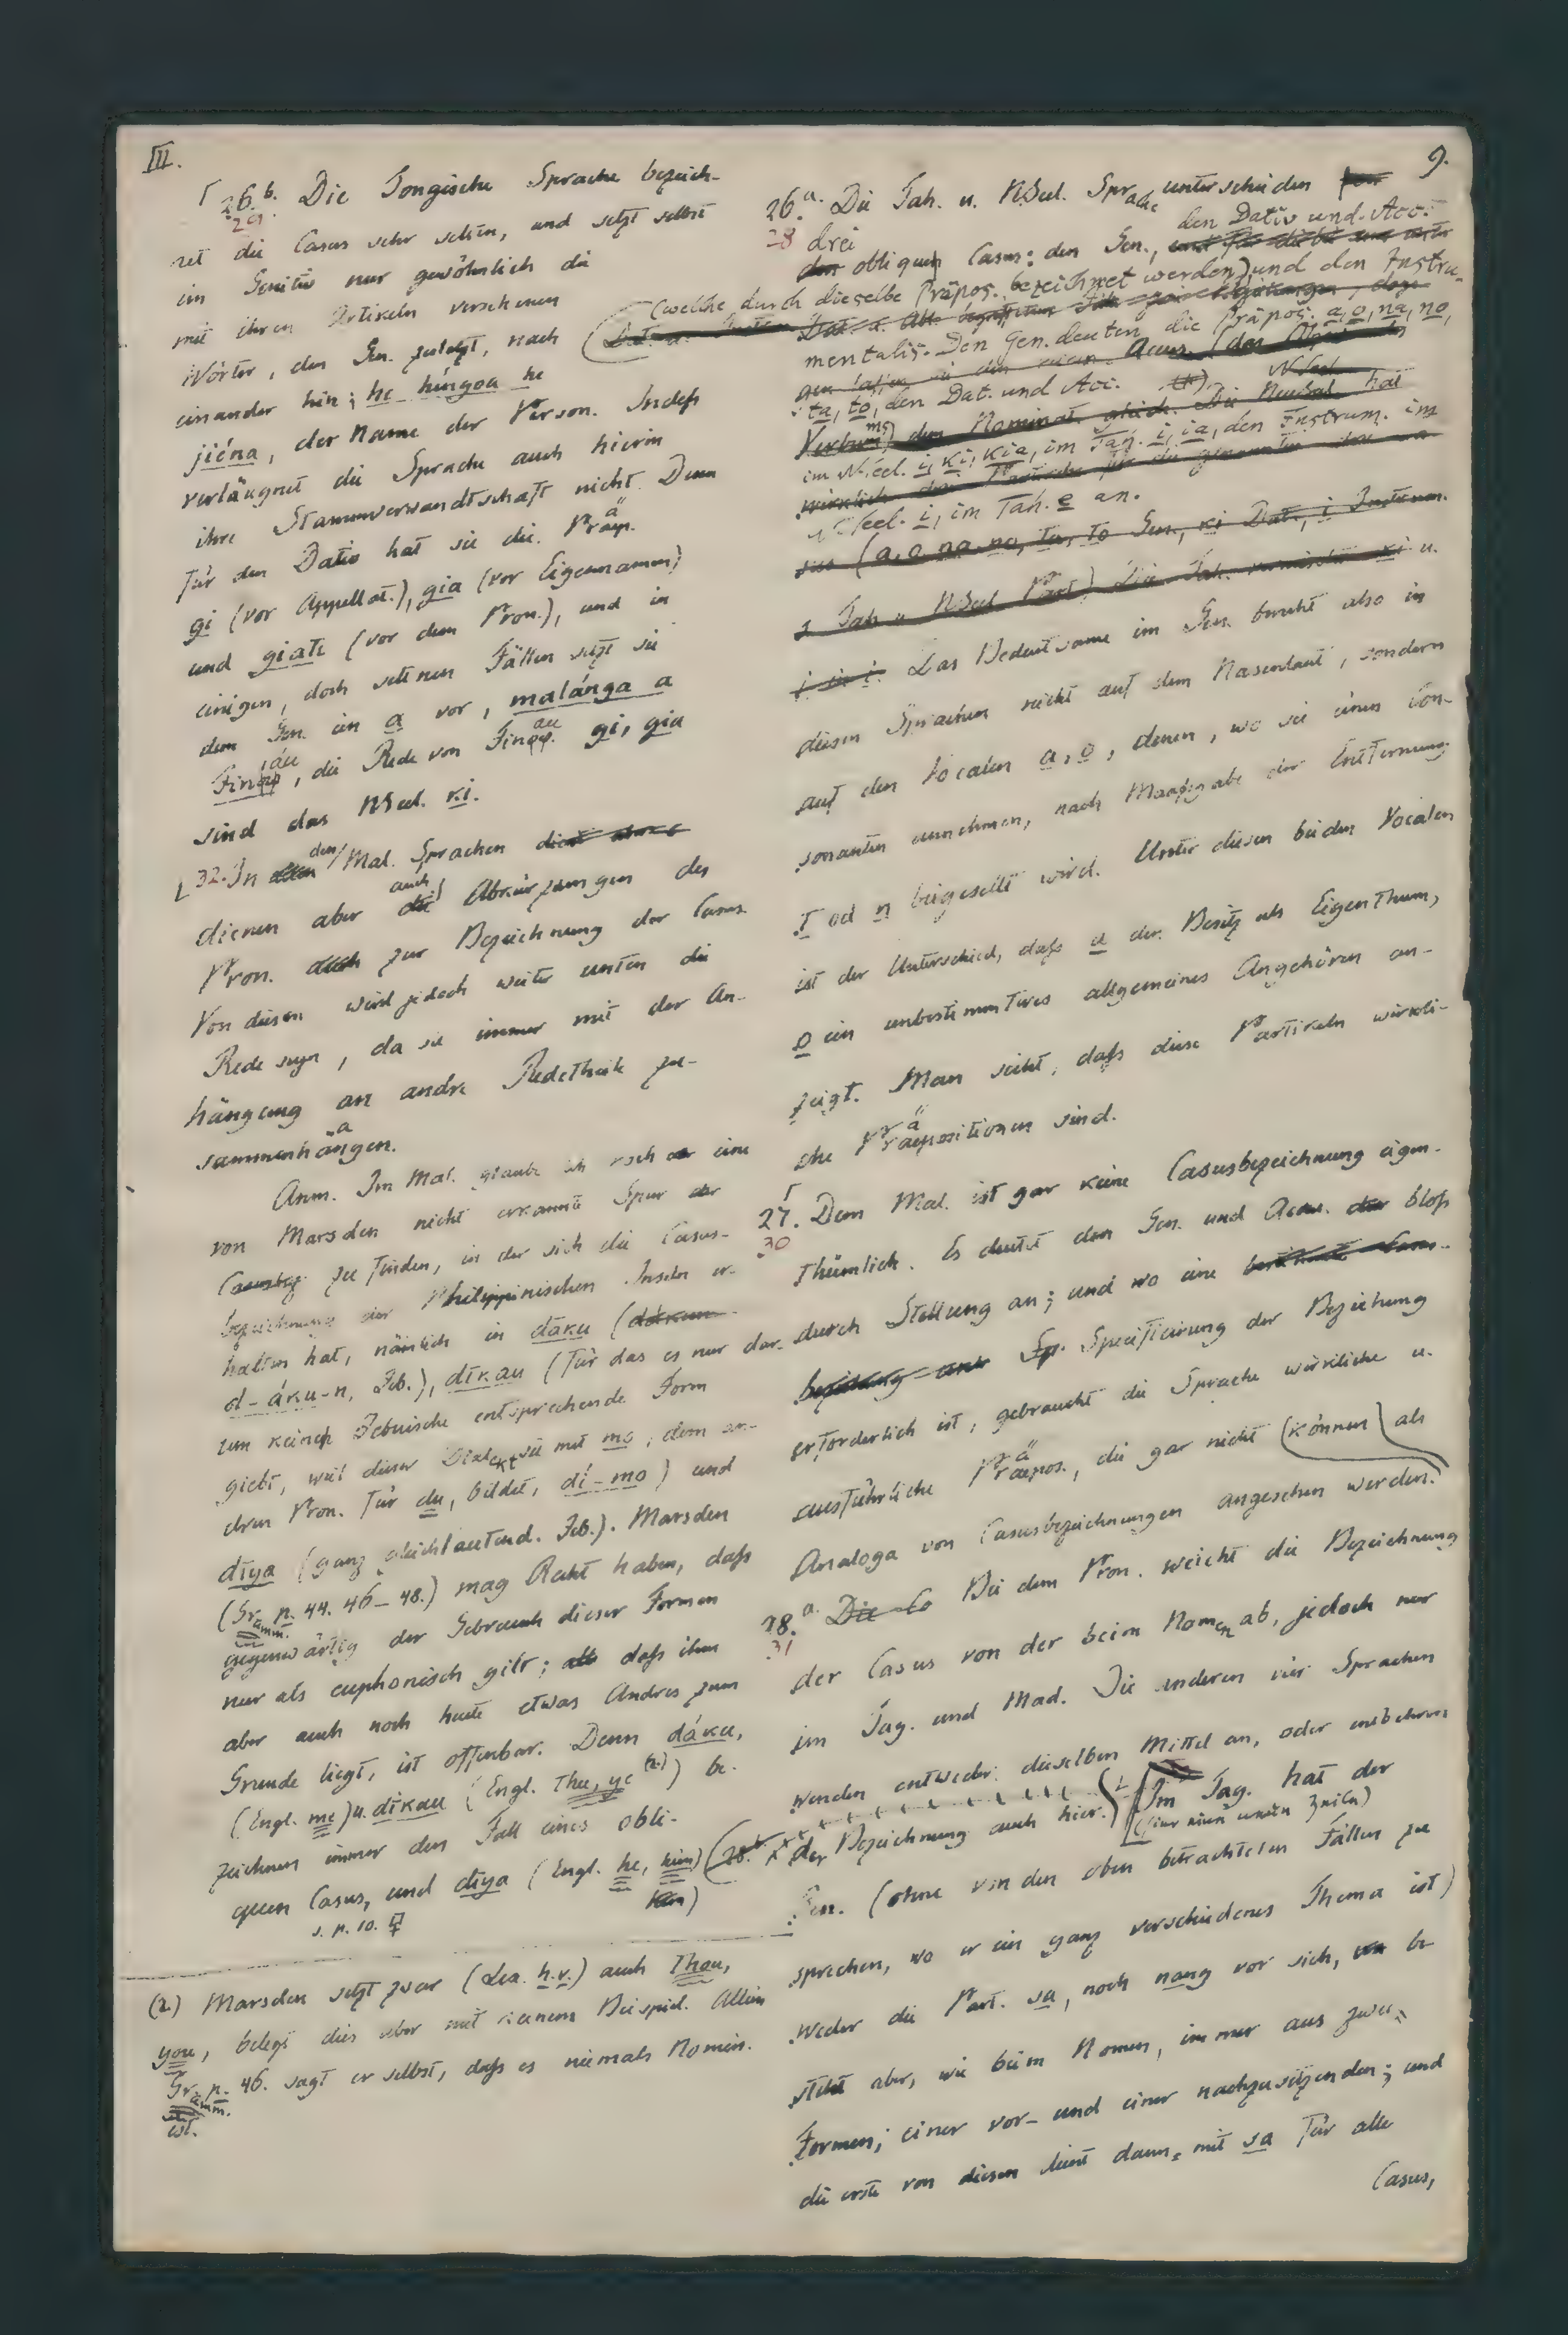 III.
9.
26.b. Die Tongische Sprache bezeich-
29.
net die Casus sehr selten, und setzt selbst
im Genitiv nur gewöhnlich die
mit ihren Artikeln versehenen
Wörter, den Gen. zuletzt, nach
einander hin; he hingoa he
jiéna, der Name der Person. Indeß
verläugnet die Sprache auch hierin
ihre Stammverwandtschaft nicht. Denn
für den Dativ hat sie die Präp.
gi (vor Appellat.), gia (vor Eigennamen)
und giate (vor dem Pron.), und in
einigen, doch seltnen Fällen setzt sie
dem Gen. ein a vor, malánga a
Finau, die Rede von Finau. gi, gia
sind das NSeel. ki.
32. In den Mal. Sprachen
dienen aber auch Abkürzungen des
Pron. zur Bezeichnung der Casus.
Von diesen wird jedoch weiter unten die
Rede seyn, da sie immer mit der An-
hängung an andre Redetheile zu-
sammenhängen.
Anm. Im Mal. glaube ich noch eine
von Marsden nicht erkannte Spur
zu finden, in der sich die Casus-
bezeichnung der Philippinischen Inseln er-
halten hat, nämlich in dāku (
d-áku-n, Zeb.), dīkau (für das es nur dar-
um keine Zebuische entsprechende Form
giebt, weil dieser Dialekt sie mit mo, dem an-
dren Pron. für du, bildet, dí-mo) und
dīya (ganz gleichlautend. Zeb.). Marsden
(Gramm. p. 44. 46-48.) mag Recht haben, daß
gegenwärtig der Gebrauch dieser Formen
nur als euphonisch gilt; daß ihm
aber auch noch heute etwas Andres zum
Grunde liegt, ist offenbar. Denn dáku,
(Engl. me) u. dīkau (Engl. thee, ye (2.)) be-
zeichnen immer den Fall eines obli-
quen Casus, und dīya (Engl. he, him)
s. p. 10.
(2.) Marsden setzt zwar (Lex. h.v.) auch Thou,
you, belegt dies aber mit keinem Beispiel. Allein
Gramm. p. 46. sagt er selbst, daß es niemals Nomin.
ist.
26.a. Die Tah. u. NSeel. Sprache unterscheiden
28 drei
obliquen Casus: den Gen., den Dativ und Acc.
(welche durch dieselbe Präpos. bezeichnet werden), und den Instru-
mentalis. Den Gen. deuten die Präpos. a, o, na, no,
ta, to, den Dat. und Acc.
im NSeel. i, ki, kia, im Tah. i, ia, den Instrum. im
NSeel. i, im Tah. e an.
Das Bedeutsame im Gen. beruht also in
diesen Sprachen nicht auf dem Nasenlaut, sondern
auf den Vocalen a, o, denen, wo sie einen Con-
sonanten annehmen, nach Maaßgabe der Entfernung
t od n beigesellt wird. Unter diesen beiden Vocalen
ist der Unterschied, daß a den Besitz als Eigenthum,
o ein unbestimmteres allgemeines Angehören an-
zeigt. Man sieht, daß diese Partikeln wirkli-
che Präpositionen sind.
27. Dem Mal. ist gar keine Casusbezeichnung eigen-
30
thümlich. Es deutet den Gen. und Accus. bloß
durch Stellung an; und wo eine
Specificirung der Beziehung
erforderlich ist, gebraucht die Sprache wirkliche u.
ausführliche Präpos., die gar nicht (können) als
Analoga von Casusbezeichnungen angesehen werden.
28.a. Bei dem Pron. weicht die Bezeichnung
31
der Casus von der beim Nomen ab, jedoch nur
im Tag. und Mad. Die anderen vier Sprachen
wenden entweder dieselben Mittel an, oder entbehren
der Bezeichnung auch hier. Im Tag. hat der
Gen. (ohne von den oben betrachteten Fällen zu
sprechen, wo er ein ganz verschiedenes Thema ist)
weder die Part. sa, noch nang vor sich, be-
steht aber, wie beim Nomen, immer aus zwei
Formen; einer vor- und einer nachzusetzenden; und
die erste von diesen dient dann mit sa für alle
Casus,